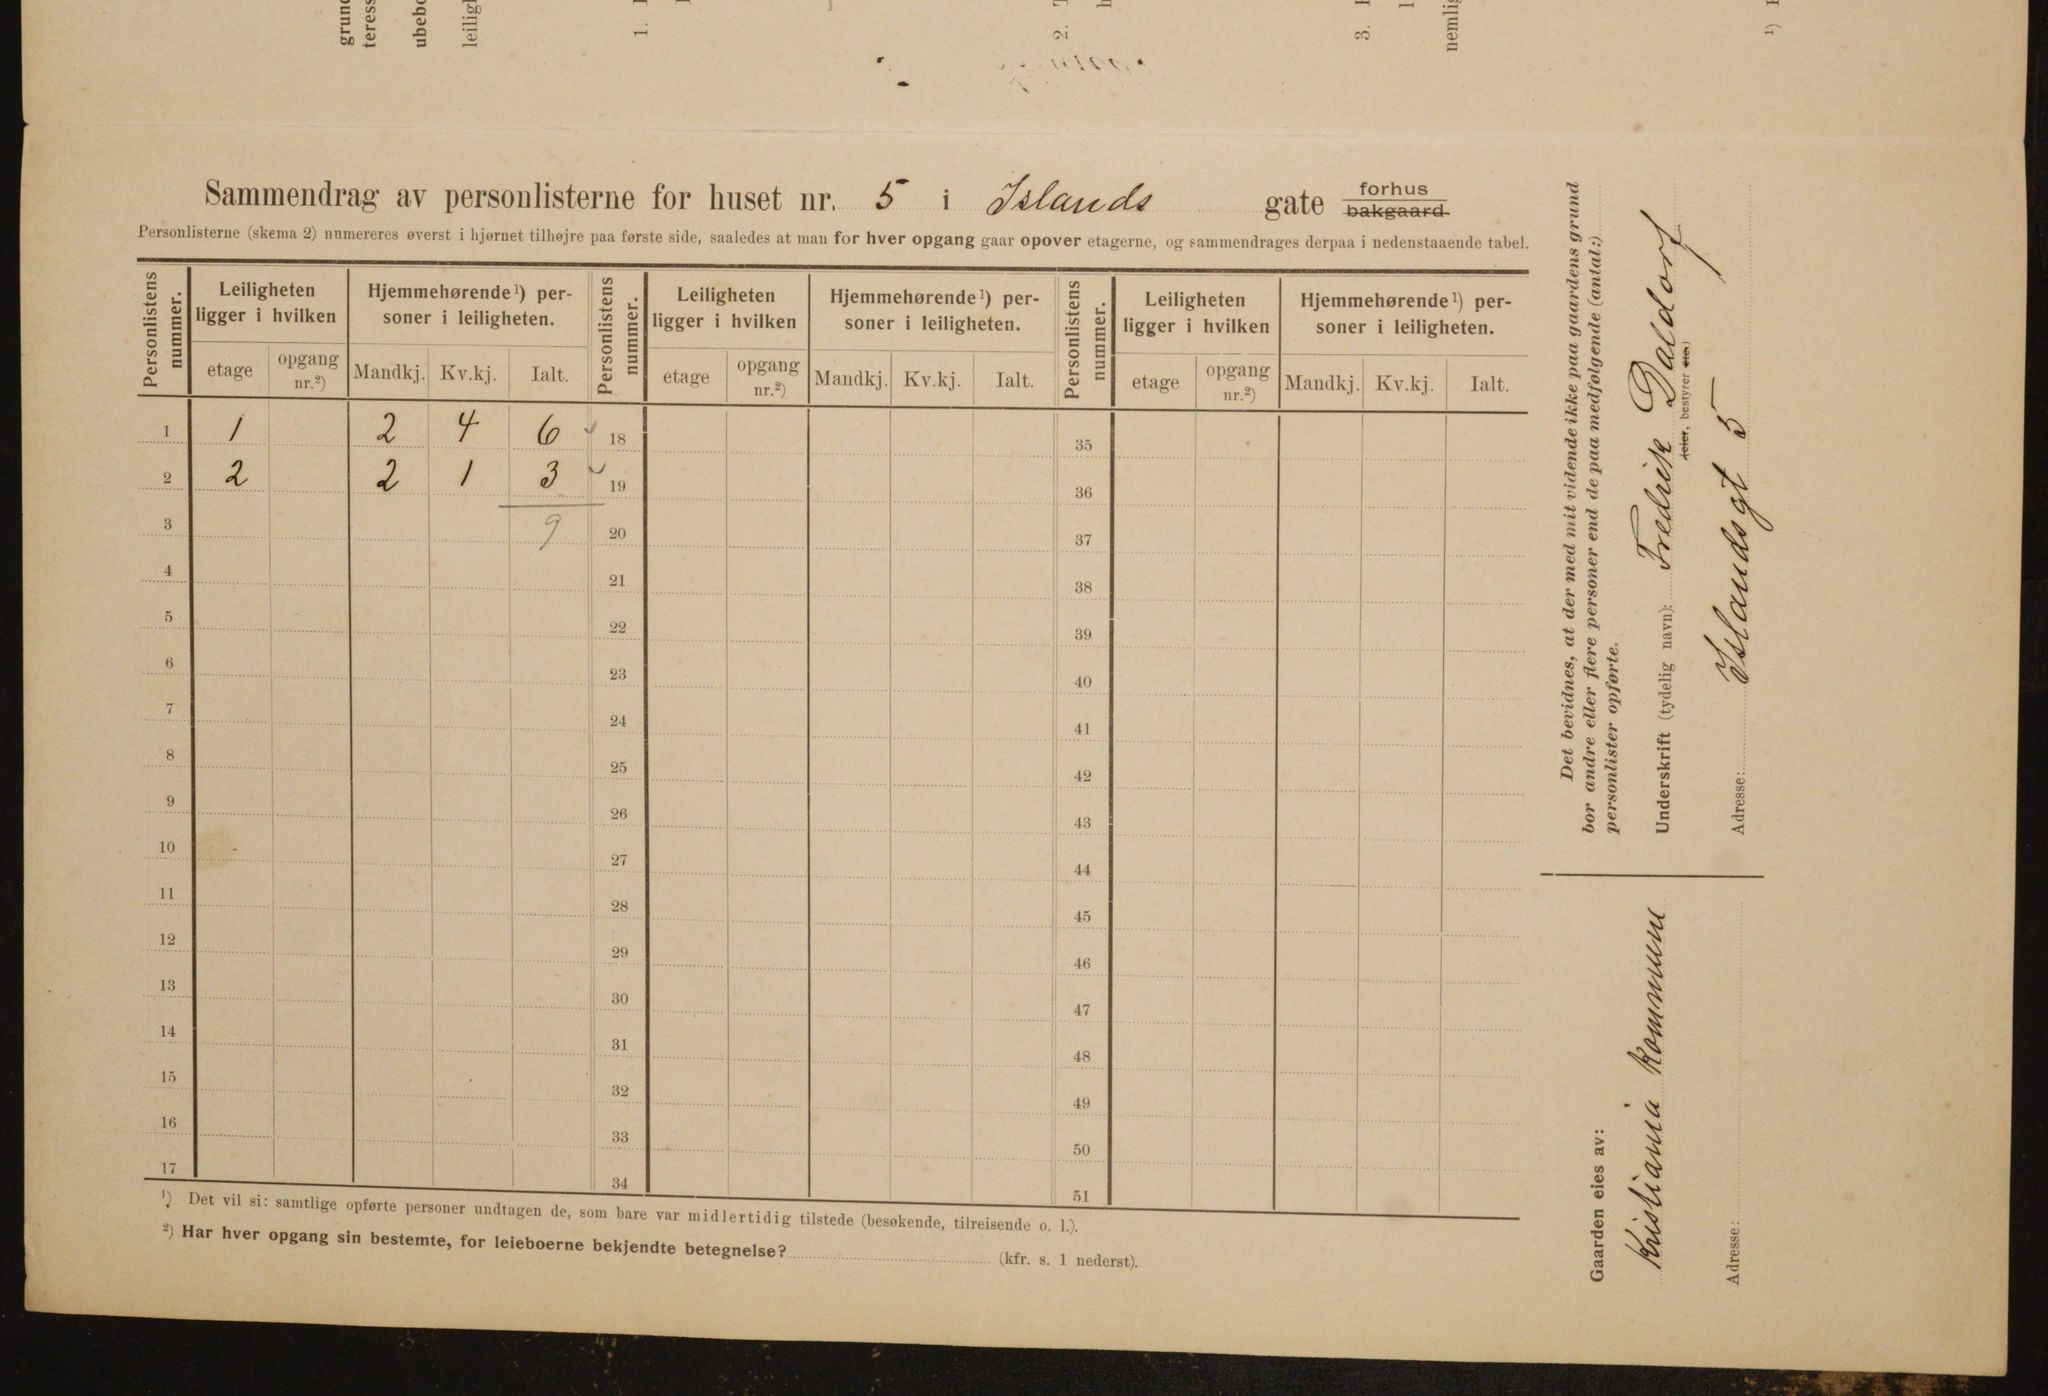 grund
teress
ubebo
leiligh
1.
2.
3.
nemlig
1)
Sammendrag av personlisterne for huset nr. 5 i Islands gate forhus bakgaard
Personlisterne (skema 2) numereres øverst i hjørnet tilhøjre paa første side, saaledes at man for hver opgang gaar opover etagerne, og sammendrages derpaa i nedenstaaende tabel.
Personlistens nummer. Leiligheten ligger i hvilken Hjemmehørende 1) personer i leiligheten. Personlistens nummer. Leiligheten ligger i hvilken Hjemmehørende 1) personer i leiligheten. Personlistens nummer. Leiligheten ligger i hvilken Hjemmehørende 1) personer i leiligheten.
etage opgang nr.2) Mandkj. Kv.kj. Ialt. etage opgang nr.2) Mandkj. Kv.kj. Ialt. etage opgang nr.2) Mandkj. Kv.kj. Ialt.
1 1 2 4 6 18 35
2 2 2 1 3 19 36
3 9 20 37
4 21 38
5 22 39
6 23 40
7 24 41
8 25 42
9 26 43
10 27 44
11 28 45
12 29 46
13 30 47
14 31 48
15 32 49
16 33 50
17 34 51
1) Det vil si: samtlige opførte personer undtagen de, som bare var midlertidig tilstede (besøkende, tilreisende o. l.).
2) Har hver opgang sin bestemte, for leieboerne bekjendte betegnelse? (kfr. s. 1 nederst).
Det bevidnes, at der med mit vidende ikke paa gaardens grund
bor andre eller flere personer end de paa medfølgende (antal:)
personlister opførte.
Underskrift (tydelig navn): Fredrik Daldorf
eier, bestyrer etc.)
Adresse: Islandsgt 5
Gaarden eies av:
Kristiania Kommune
Adresse: